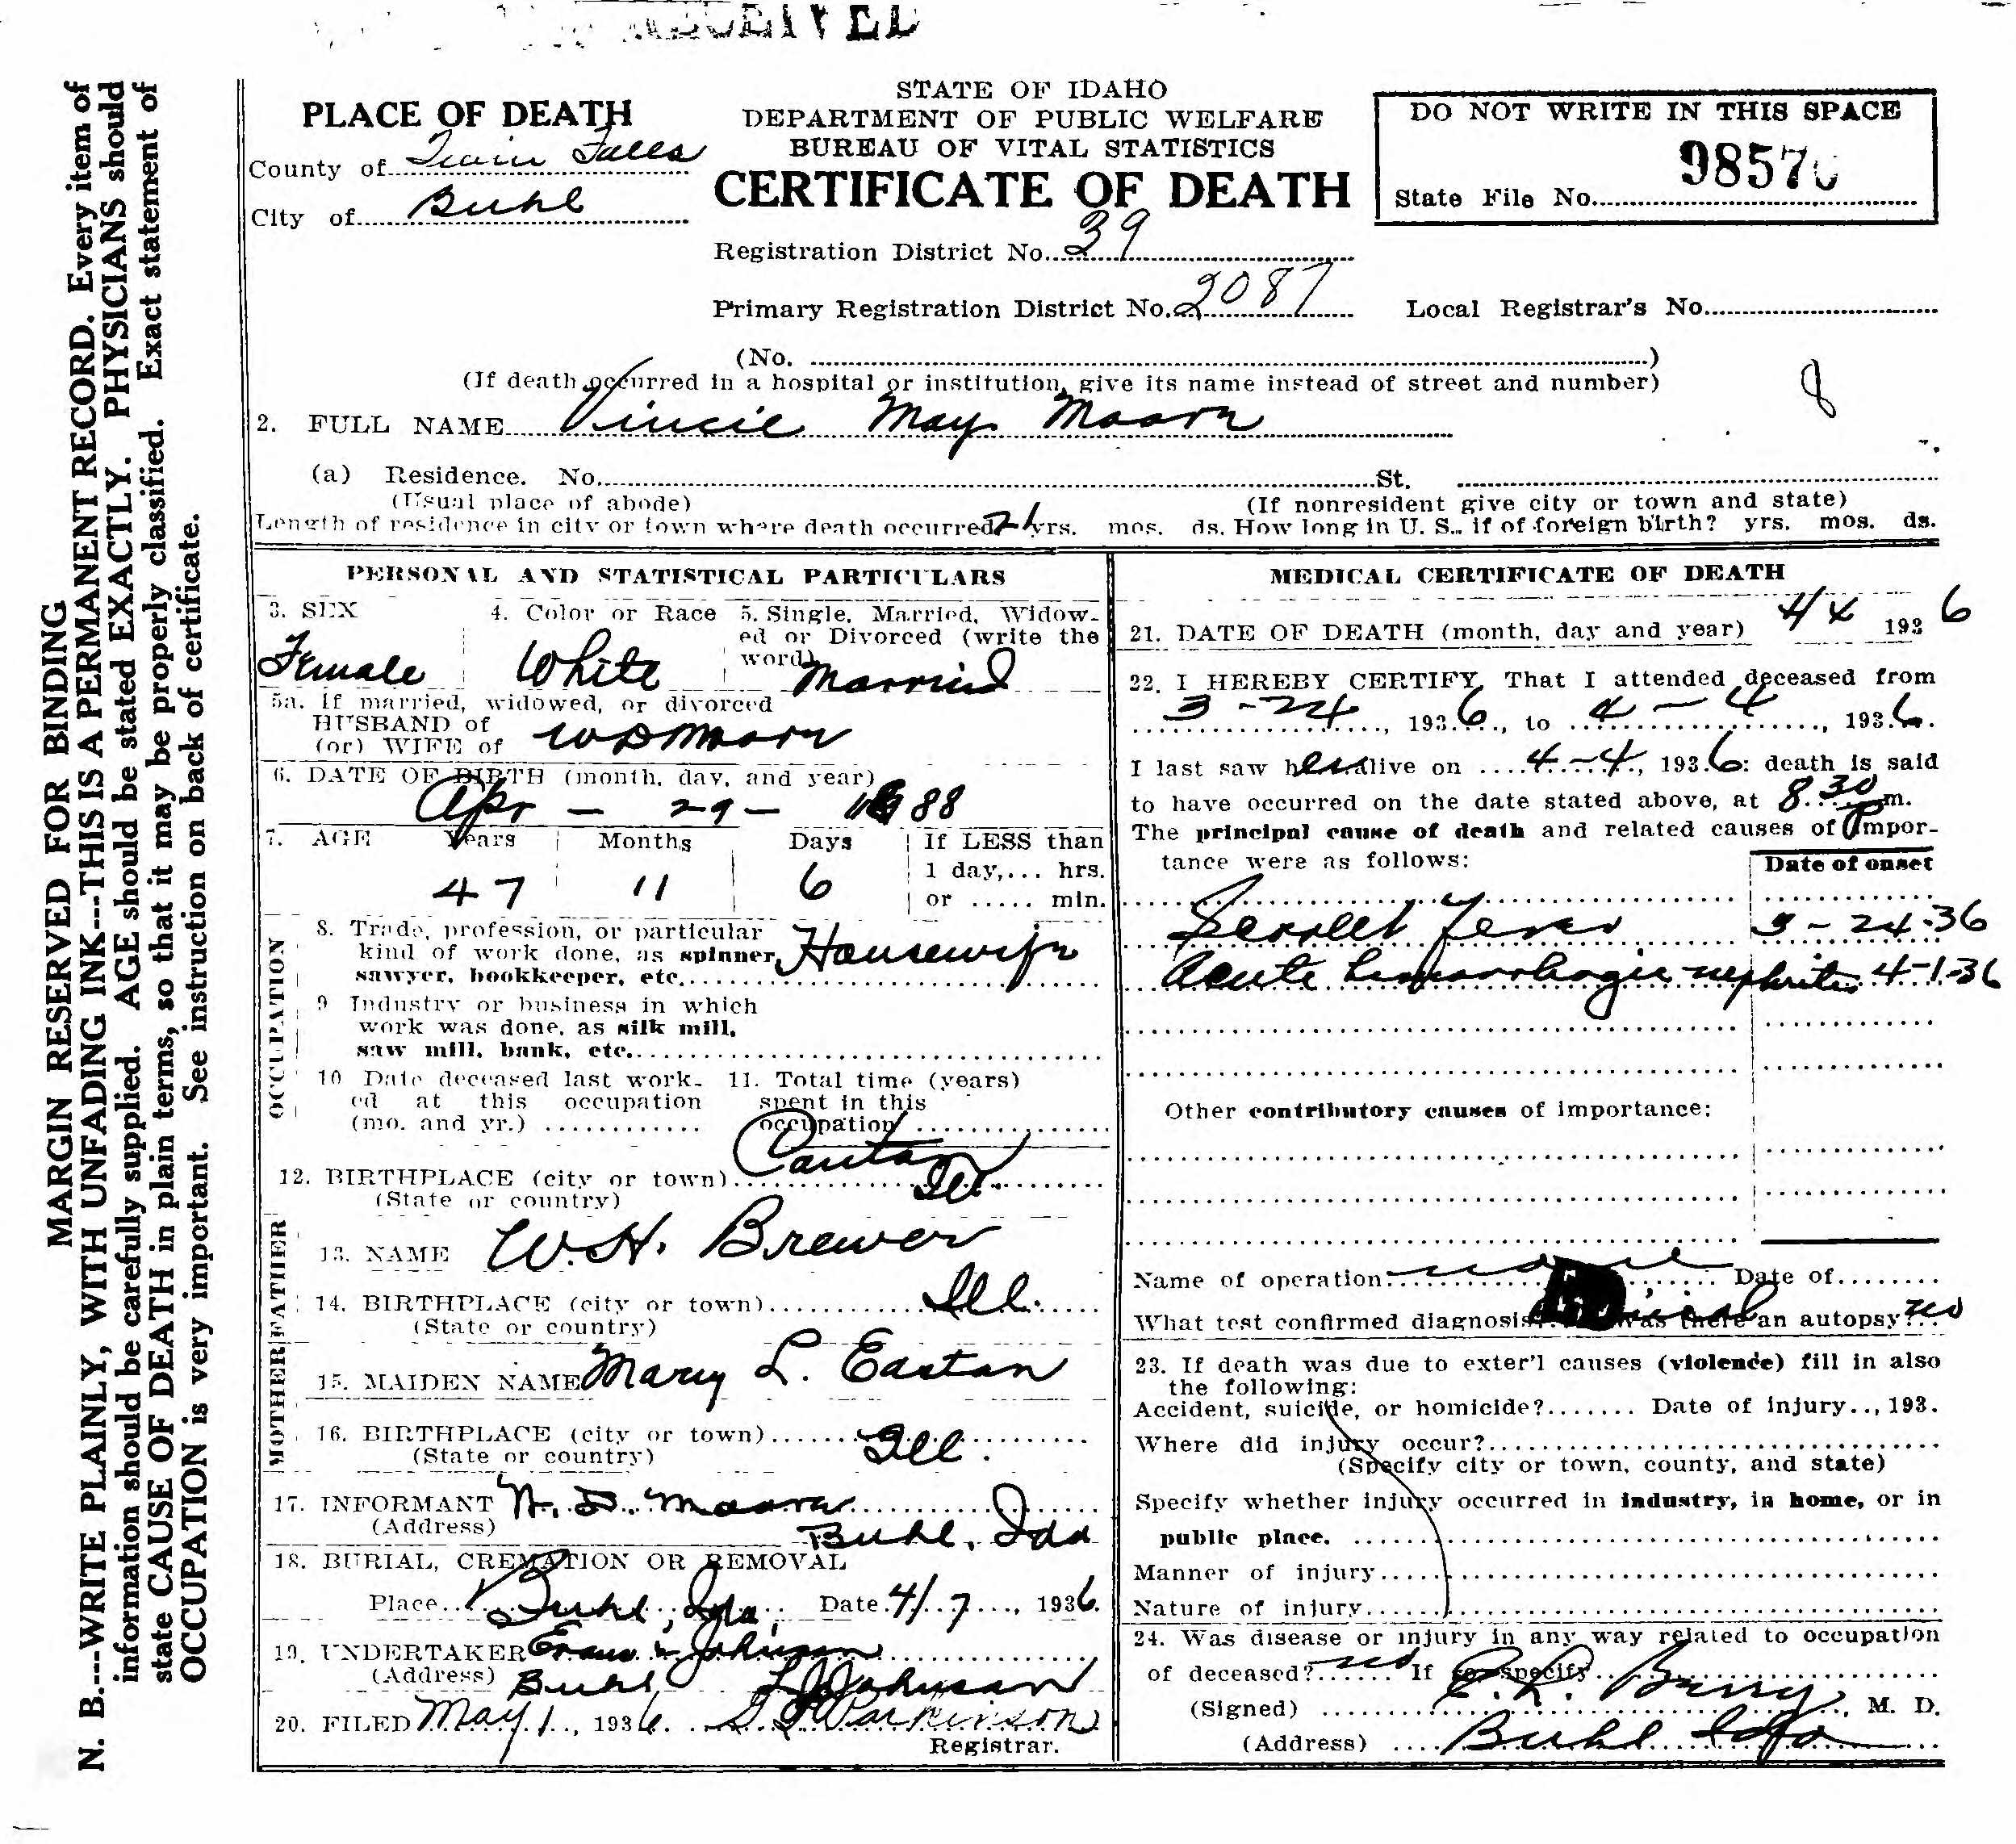 RECEIVED
PLACE OF DEATH
County of Twin Falls
City of Buhl
STATE OF IDAHO
DEPARTMENT OF PUBLIC WELFARE
BUREAU OF VITAL STATISTICS
CERTIFICATE OF DEATH
Registration District No. 39
Primary Registration District No. 2087
DO NOT WRITE IN THIS SPACE
State File No. 98576
Local Registrar's No.
(No. )
(If death occurred in a hospital or institution, give its name instead of street and number)
8
2. FULL NAME Vincie May Moore
(a) Residence. No. St.
(Usual place of abode) (If nonresident give city or town and state)
Length of residence in city or town where death occurred 21 yrs. mos. ds. How long in U. S., if of foreign birth? yrs. mos. ds.
PERSONAL AND STATISTICAL PARTICULARS
3. SEX 4. Color or Race 5. Single, Married, Widow-
ed or Divorced (write the
word)
Female White Married
5a. If married, widowed, or divorced
HUSBAND of
(or) WIFE of W D Moore
6. DATE OF BIRTH (month, day, and year)
Apr - 29 - 1888
7. AGE Years Months Days If LESS than
1 day,... hrs.
or ..... min.
47 11 6
OCCUPATION
8. Trade, profession, or particular
kind of work done, as spinner, Housewife
sawyer, bookkeeper, etc.
9 Industry or business in which
work was done, as silk mill,
saw mill, bank, etc.
10 Date deceased last work- 11. Total time (years)
ed at this occupation spent in this
(mo. and yr.) occupation
12. BIRTHPLACE (city or town) Canton
(State or country) Ill.
FATHER
13. NAME W.H. Brewer
14. BIRTHPLACE (city or town) Ill.
(State or country)
MOTHER
15. MAIDEN NAME Mary L. Easton
16. BIRTHPLACE (city or town) Ill.
(State or country)
17. INFORMANT W. D. Moore
(Address) Buhl, Ida
18. BURIAL, CREMATION OR REMOVAL
Place Buhl, Ida, Date 4/7, 1936.
19. UNDERTAKER Evans & Johnson
(Address) Buhl Johnson
20. FILED May 1, 1936. Parkinson
Registrar.
MEDICAL CERTIFICATE OF DEATH
21. DATE OF DEATH (month, day and year) 4 4 1936
22. I HEREBY CERTIFY, That I attended deceased from
3-24, 1936, to 4-4, 1936.
I last saw her alive on 4-4, 1936: death is said
to have occurred on the date stated above, at 8:30 Pm.
The principal cause of death and related causes of impor-
tance were as follows: Date of onset
Scarlet Fever 3-24-36
Acute hemorrhagic nephritis 4-1-36
Other contributory causes of importance:
Name of operation none Date of
What test confirmed diagnosis Was there an autopsy? no
23. If death was due to exter'l causes (violence) fill in also
the following:
Accident, suicide, or homicide? Date of injury.., 193.
Where did injury occur?
(Specify city or town, county, and state)
Specify whether injury occurred in industry, in home, or in
public place.
Manner of injury
Nature of injury
24. Was disease or injury in any way related to occupation
of deceased? no If so specify
(Signed) Barry, M. D.
(Address) Buhl Ida
MARGIN RESERVED FOR BINDING
N. B.---WRITE PLAINLY, WITH UNFADING INK---THIS IS A PERMANENT RECORD. Every item of
information should be carefully supplied. AGE should be stated EXACTLY. PHYSICIANS should
state CAUSE OF DEATH in plain terms, so that it may be properly classified. Exact statement of
OCCUPATION is very important. See instruction on back of certificate.